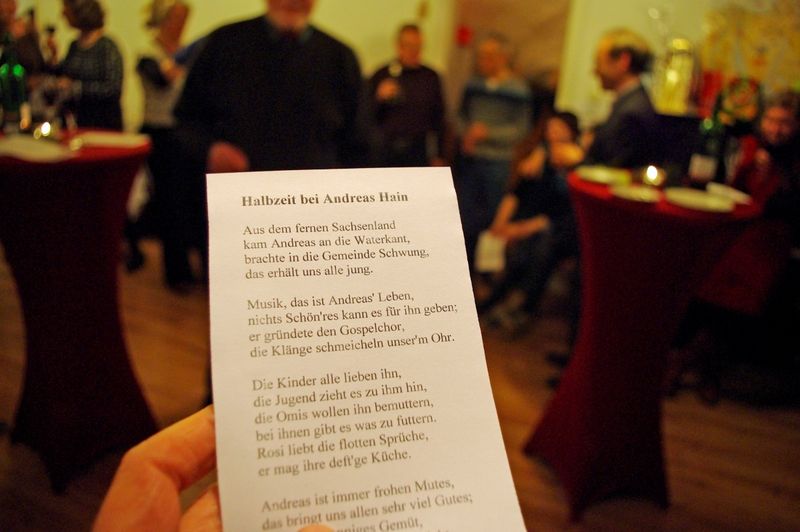 Halbzeit bei Andreas Hain
Aus dem fernen Sachsenland
kam Andreas an die Waterkant,
brachte in die Gemeinde Schwung,
das erhält uns alle jung.
Musik, das ist Andreas' Leben,
nichts Schön'res kann es für ihn geben;
er gründete den Gospelchor,
die Klänge schmeicheln unser'm Ohr.
Die Kinder alle lieben ihn,
die Jugend zieht es zu ihm hin,
die Omis wollen ihn bemuttern,
bei ihnen gibt es was zu futtern.
Rosi liebt die flotten Sprüche,
er mag ihre deft'ge Küche.
Andreas ist immer frohen Mutes,
das bringt uns allen sehr viel Gutes;
Gemüt,